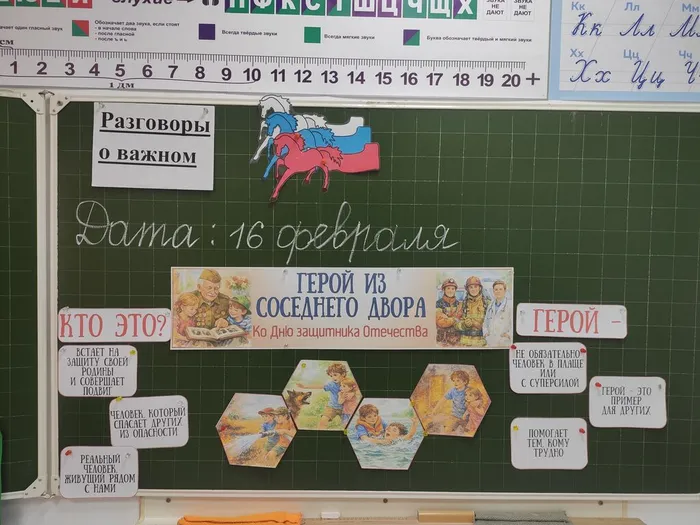 Обозначает два звука, если стоят
- в начале слова
- после гласной
- после ъ и ь
Всегда твёрдые звуки
Всегда мягкие звуки
Буква обозначает твёрдый и мягкий звуки
ЗВУКА НЕ ДАЮТ
ЗВУКА НЕ ДАЮТ
П Ф К С Т Ш Ц Ч Щ Х
Кк Лл
Кк Лл
Хх Цц
Хх Цц
1 2 3 4 5 6 7 8 9 10 11 12 13 14 15 16 17 18 19 20 +
1 дм
Разговоры
о важном
Дата: 16 февраля
ГЕРОЙ ИЗ
СОСЕДНЕГО ДВОРА
Ко Дню защитника Отечества
КТО ЭТО?
ВСТАЕТ НА
ЗАЩИТУ СВОЕЙ
РОДИНЫ
И СОВЕРШАЕТ
ПОДВИГ
ЧЕЛОВЕК, КОТОРЫЙ
СПАСАЕТ ДРУГИХ
ИЗ ОПАСНОСТИ
РЕАЛЬНЫЙ
ЧЕЛОВЕК,
ЖИВУЩИЙ РЯДОМ
С НАМИ
ГЕРОЙ -
НЕ ОБЯЗАТЕЛЬНО
ЧЕЛОВЕК В ПЛАЩЕ
ИЛИ
С СУПЕРСИЛОЙ
ГЕРОЙ - ЭТО
ПРИМЕР
ДЛЯ ДРУГИХ
ПОМОГАЕТ
ТЕМ, КОМУ
ТРУДНО